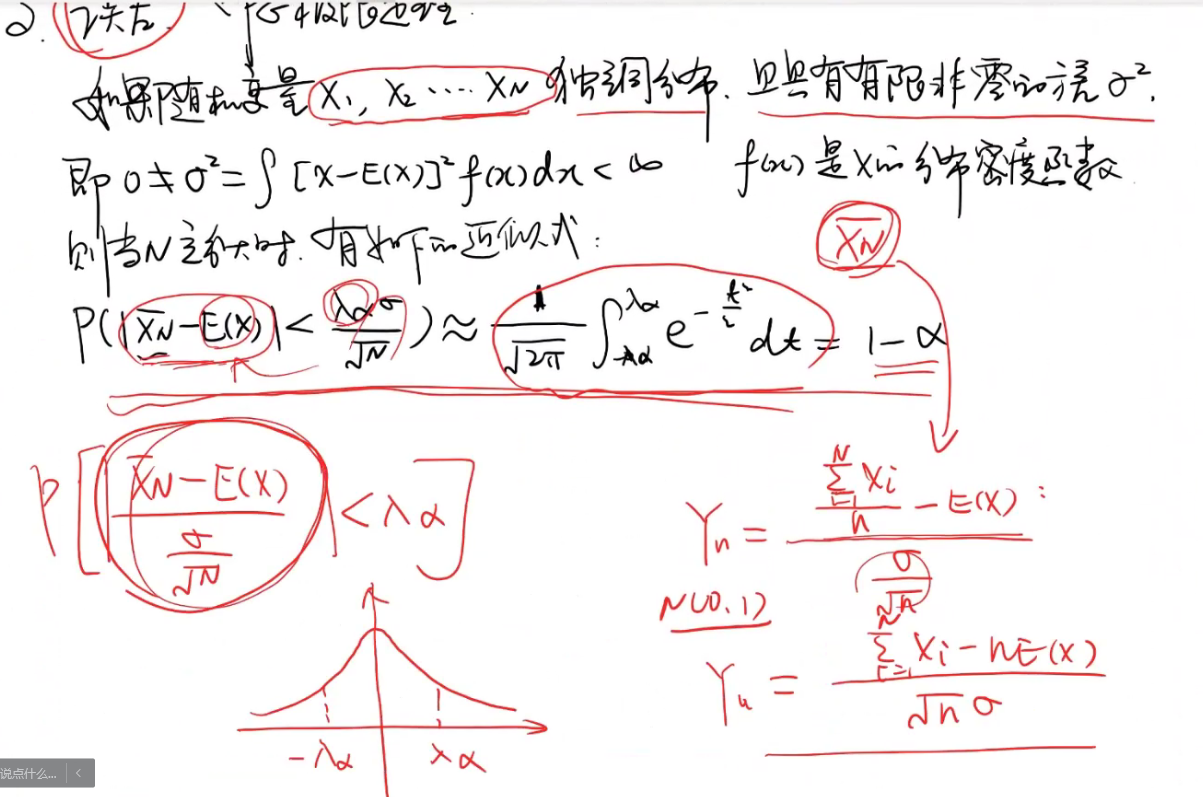 2. 误差. 中心极限定理.
如果随机变量 X₁, X₂ ···· X_N 独立同分布. 且具有有限非零的方差 σ².
即 0 ≠ σ² = ∫ [X-E(X)]² f(x)dx < ∞ f(x) 是 X 的分布密度函数
则当N充分大时. 有如下的近似式:
X̄_N
P(|X̄_N - E(X)| < λ_α σ / √N) ≈ 1/√2π ∫_{-λα}^{λα} e^{-t²/2} dt = 1-α
P[|(X̄_N - E(X)) / (σ/√N)| < λ_α]
Y_n = (Σ_{i=1}^{N} X_i / n - E(X)) / (σ/√n)
N(0,1)
Y_n = (Σ_{i=1}^{N} X_i - nE(X)) / (√n σ)
-λ_α λ_α
说点什么...